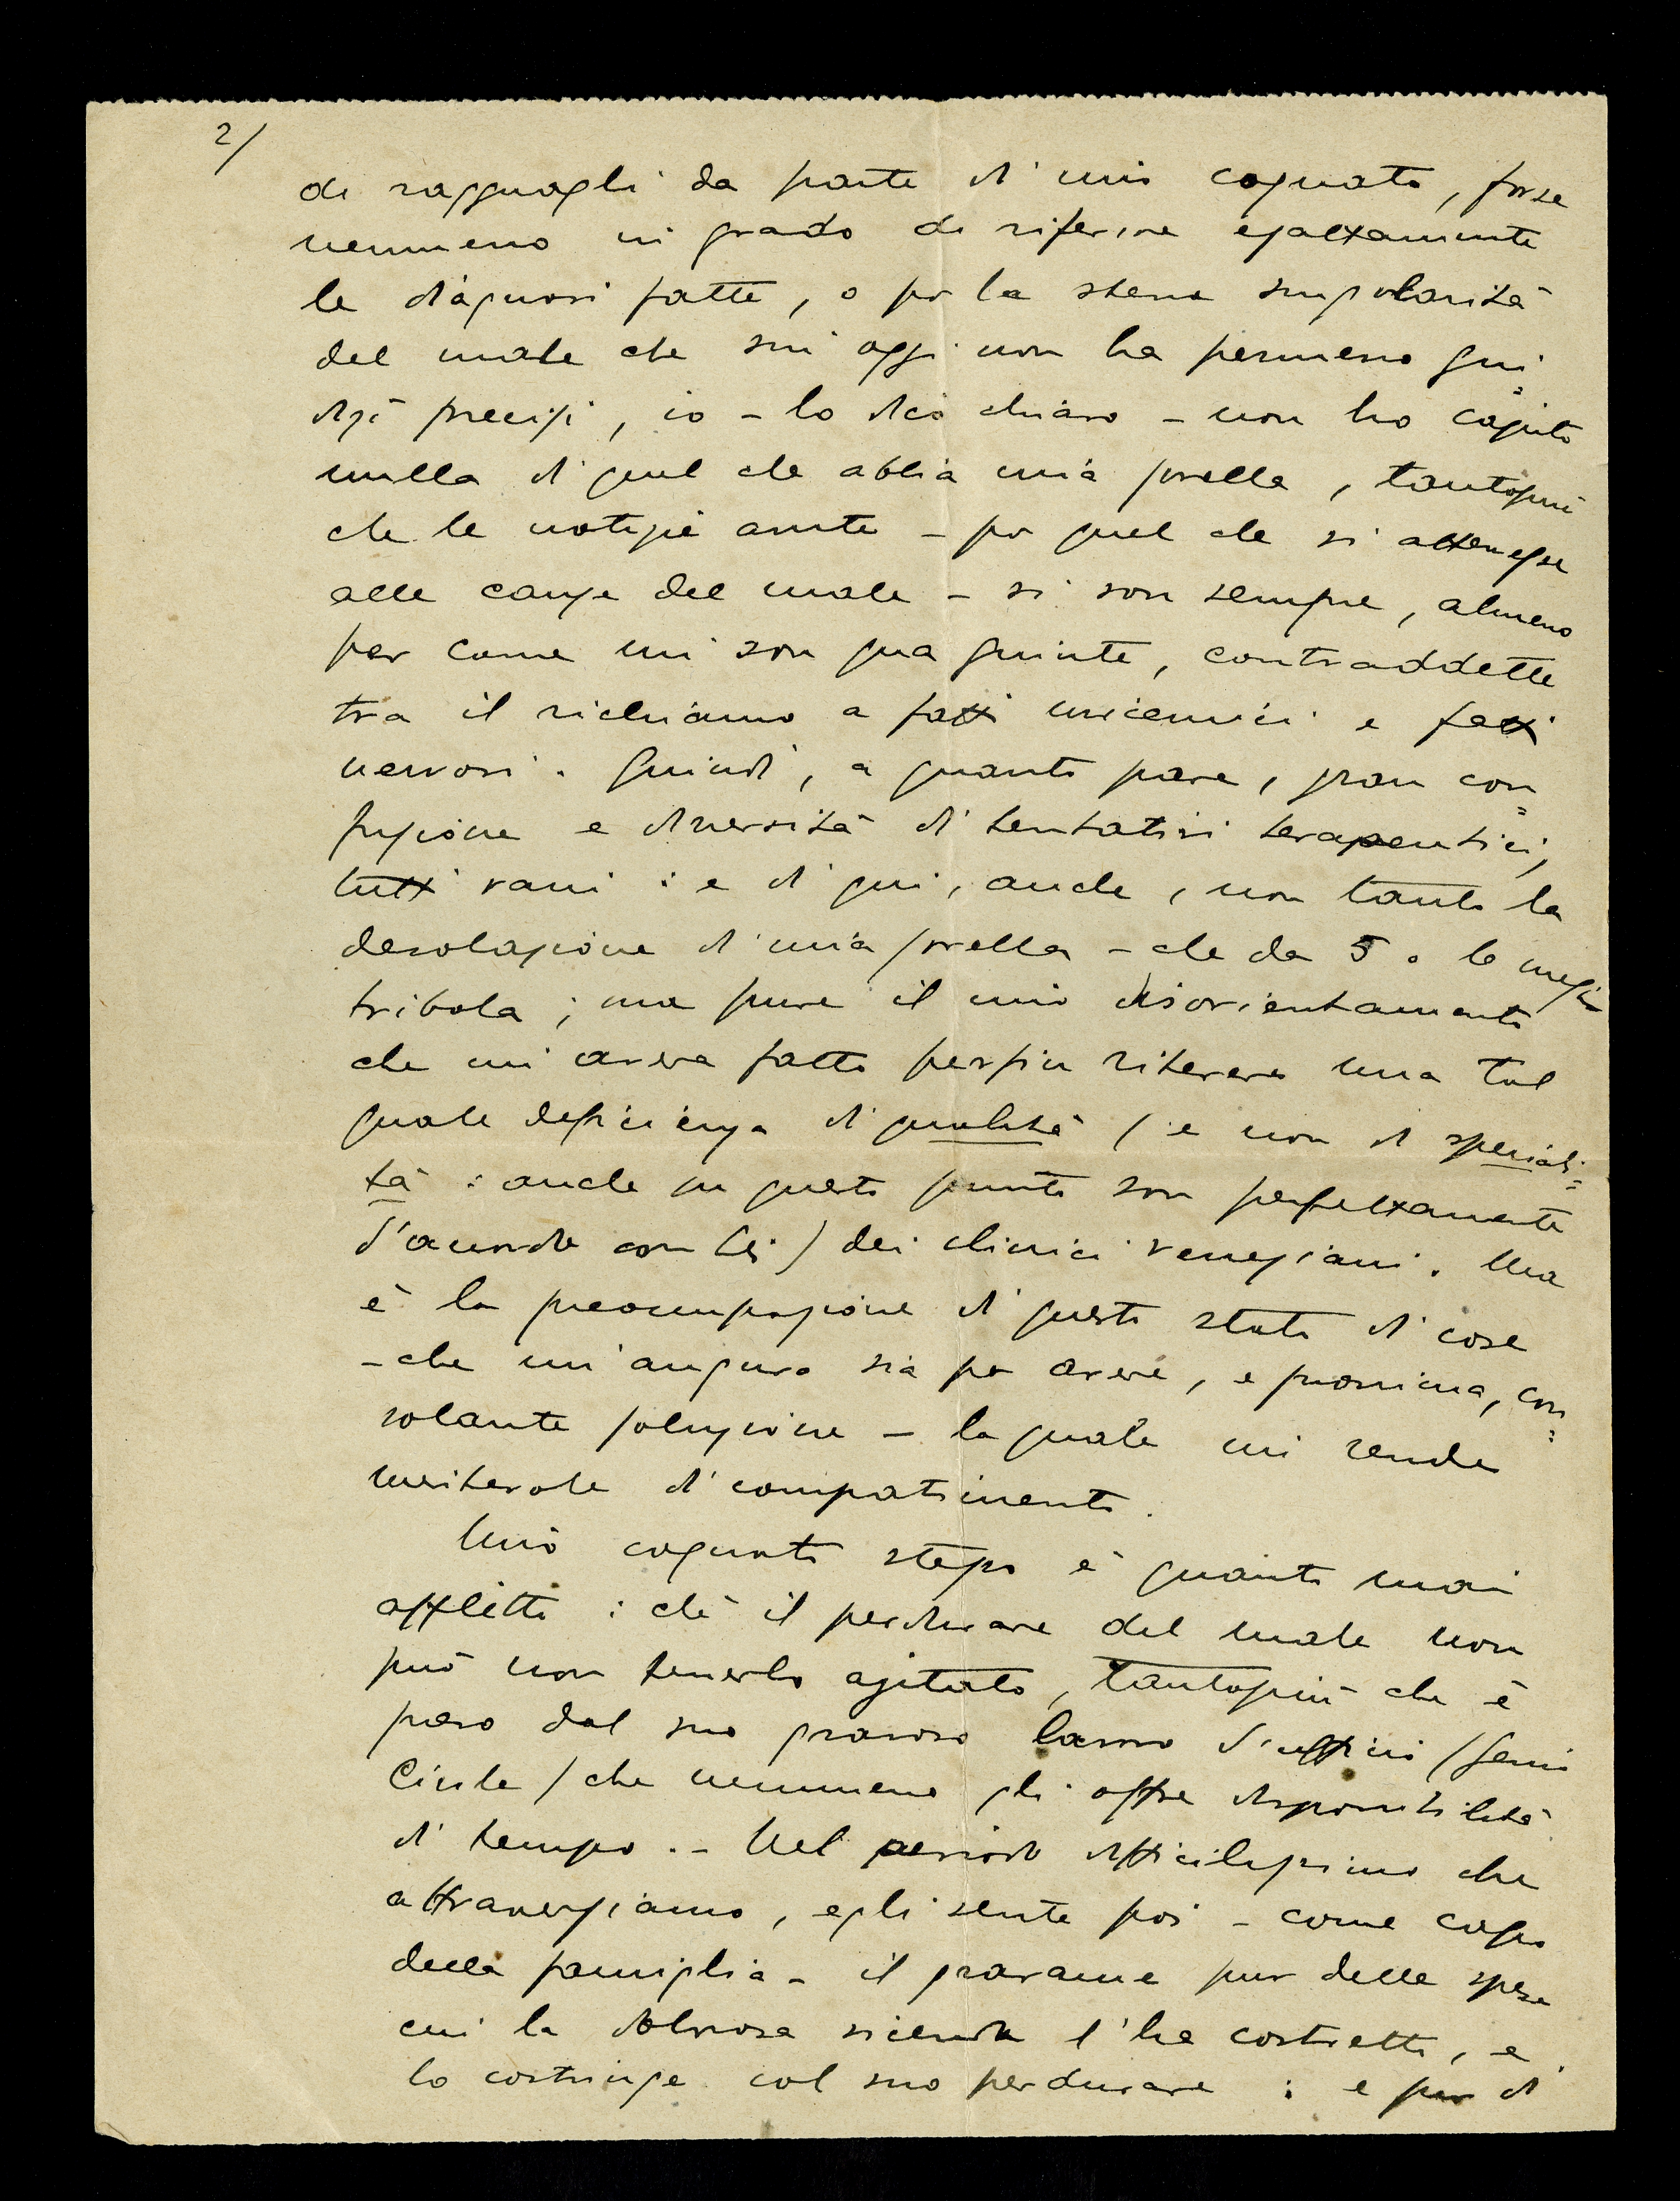 2/
di ragguagli da parte di mio cognato, forse
nemmeno in grado di riferire esattamente
le diagnosi fatte, o per la stessa singolarità
del male che sin oggi non ha permesso giu=
dizi precisi, io - lo dico chiaro - non ho capito
nulla di quel che abbia mia sorella, tantopiù
che le notizie avute - per quel che si attenesse
alle cause del male - si son sempre, almeno
per come mi son qua giunte, contraddette
tra il richiamo a fatti uricemici e fatti
nervosi. Quindi, a quanto pare, gran con=
fusione e diversità di tentativi terapeutici,
tutti vani : e di qui, anche, non tanto la
desolazione di mia sorella - che da 5 o 6 mesi
tribola ; ma pure il mio disorientamento
che mi aveva fatto persin ritenere una tal
quale deficienza di qualità (e non di speciali=
tà : anche su questo punto son perfettamente
d'accordo con Lei) dei clinici veneziani. Ma
è la preoccupazione di questo stato di cose
- che mi auguro sia per avere, e prossima, con=
solante soluzione - la quale mi rende
meritevole di compatimento.
Mio cognato stesso è quanto mai
afflitto : chè il perdurare del male non
può non tenerlo agitato, tantopiù che è
preso dal suo gravoso lavoro d'ufficio (Genio
Civile) che nemmeno gli offre disponibilità
di tempo. - Nel periodo difficilissimo che
attraversiamo, egli sente poi - come capo
della famiglia - il gravame pur delle spese
cui la dolorosa vicenda l'ha costretto, e
lo costringe col suo perdurare : e pur di